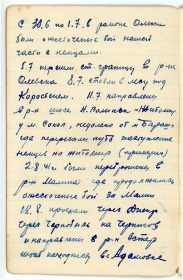 С 30.6 по 1.7. в районе Олыки
были ожесточеные бои нашей
части с немцами.
5.7 перешли ст. границу в р-не
Олевска 8.7. стояли в лесу под
Коростенем. 11.7 направлены
в р-н шоссе Н. Волынск – Житомир
у м. Сокол, недалеко от м
где перерезали путь наступления
немцев на Житомир
2.8.41 были переброшены в
р-н Малина где продолжались
ожесточеные бои за Малин
18.8. прошли через Днепр
через Чернобыль на Чернигов
и направлены в р-н Остер